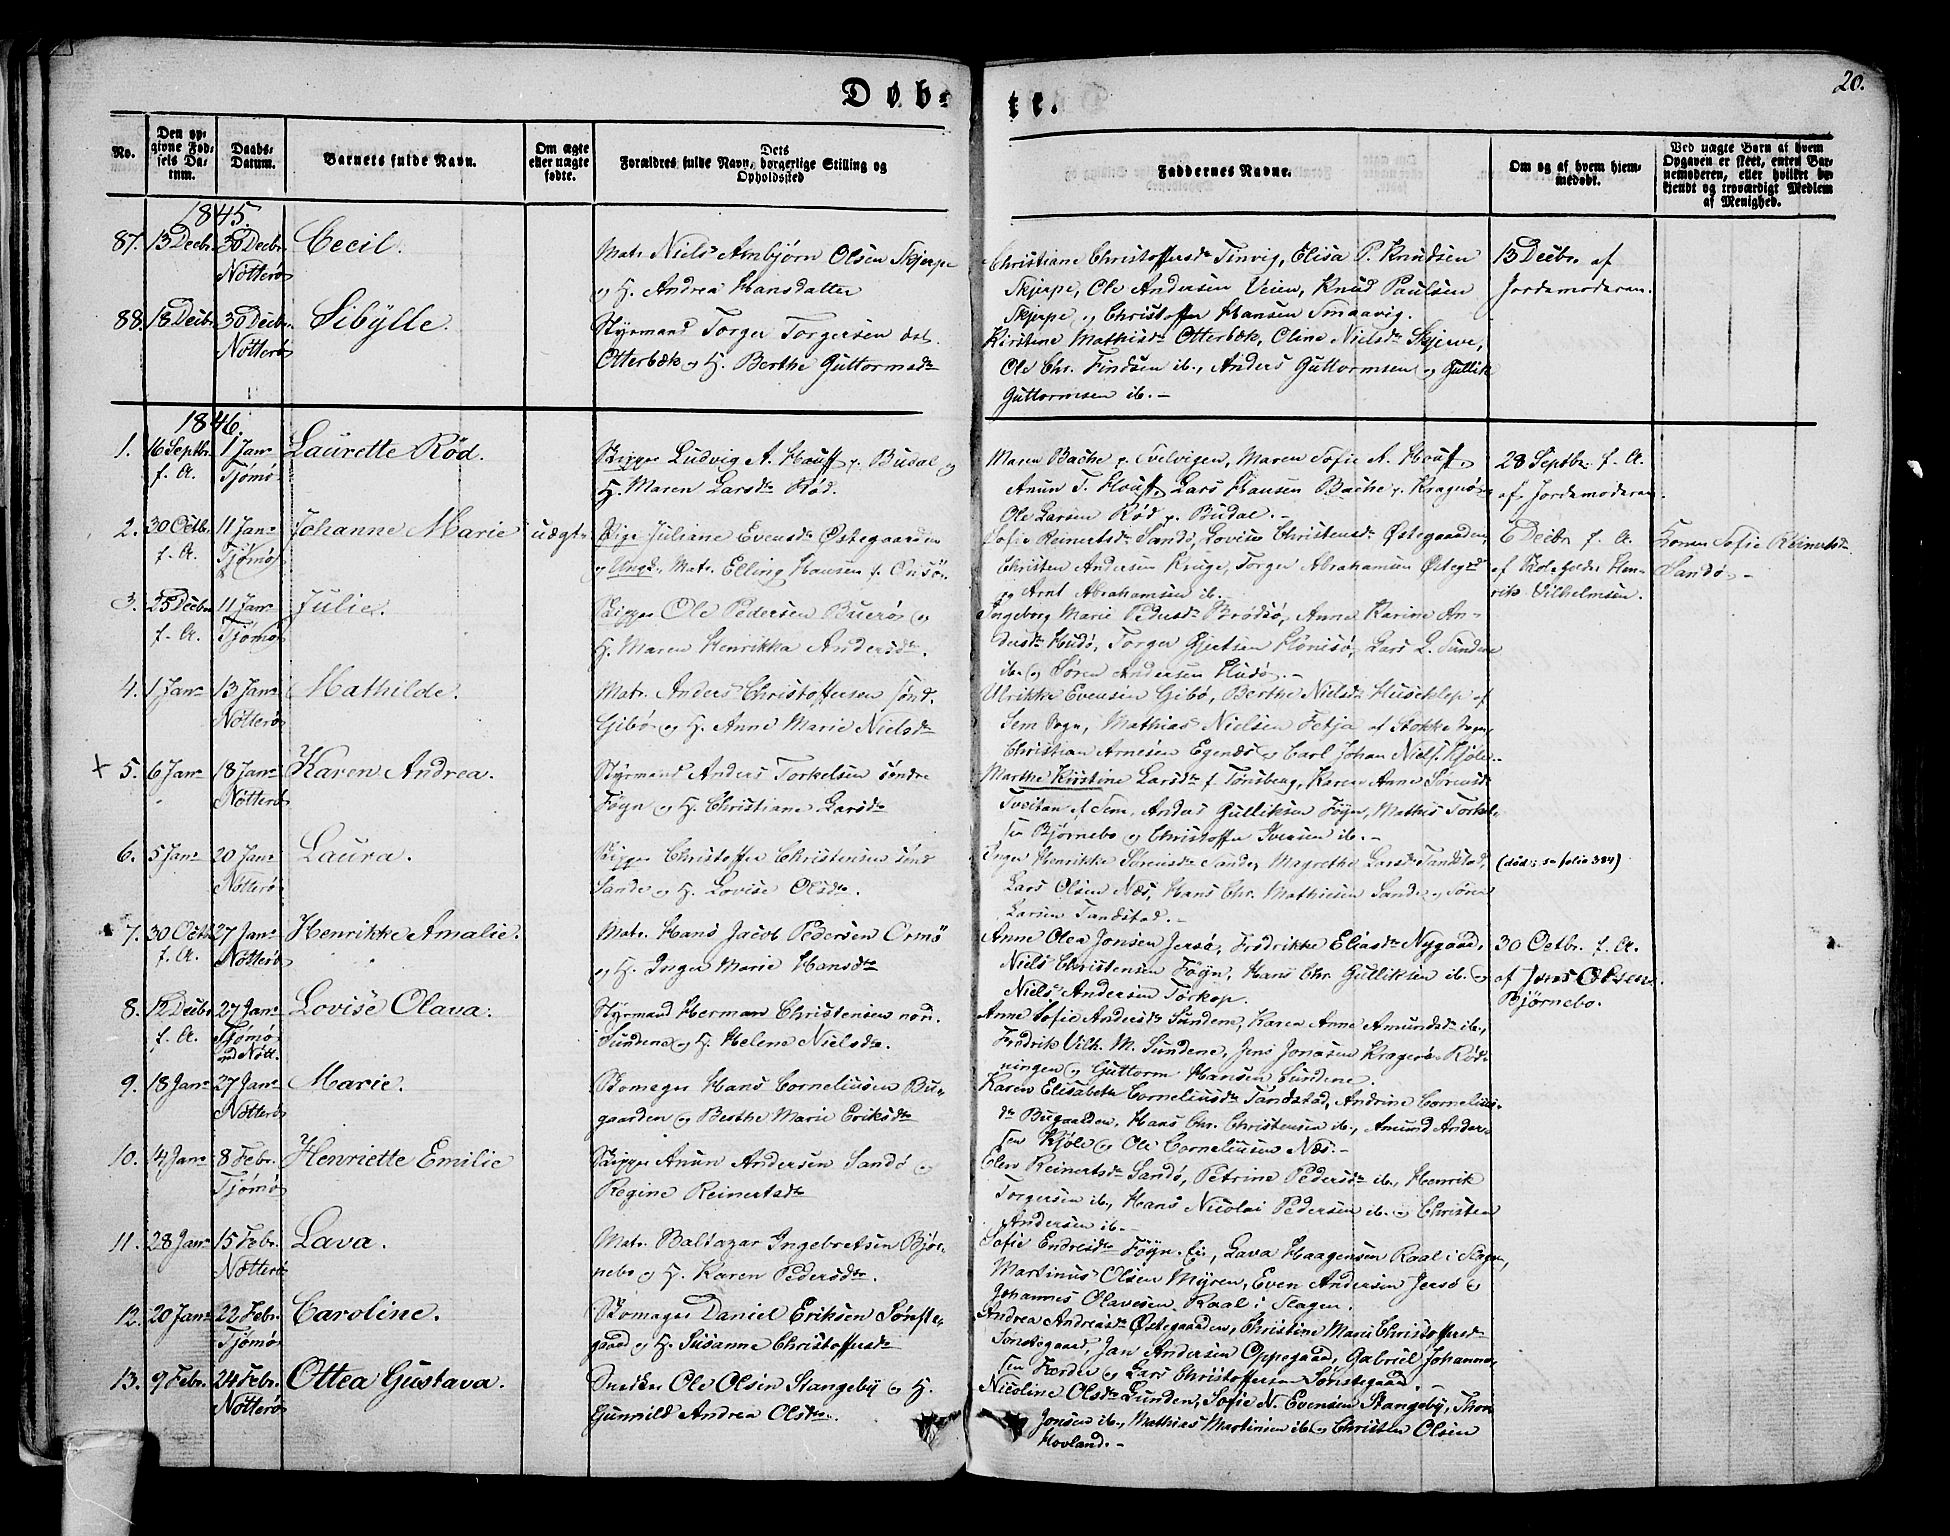 Døb-
te.
20.
No.
Den op-
givne Fød-
sels Da-
tum.
Daabs-
Datum.
Barnets fulde Navn.
Om ægte
eller uægte
fødte.
Dets
Forældres fulde Navn, borgerlige Stilling og
Opholdssted
Faddernes Navne.
Om og af hvem hjem-
medøbt.
Ved uægte Barn af hvem
Opgaven er skeet, enten Bar-
nemoderen, eller hvilket be-
kjendt og troværdigt Medlem
af Menighed.
1845.
87. 13 Decbr. 30 Decbr. Cecil.
Nötterö
Matr. Niels Arnbjørn Olsen Skjerpe
og H. Andrea Hansdatter
Christiane Christoffersdr Smvig, Elisa P. Knudsen
Skjerpe, Ole Andersen Veien, Knud Paulsen
Skjerpe og Christoffer Hansen Smaavig.
13 Decbr. af
Jordemoderen.
88. 18 Decbr. 30 Decbr. Sibylle.
Nötterö
Styrmand Torger Torgersen
Otterbæk og H. Berthe Guttormsdr
Kirstine Mathisdr Otterbæk, Oline Nielsdr Skjerve,
Ole Chr. Findsen ib., Anders Guttormsen og Gullik
Guttormsen ib.-
1846.
1. 16 Septbr. 1 Janr Laurette Rød.
f. A. Tjømø
Skipper Ludvig A. Houff p. Budal og
H. Maren Larsdr Rød.
Maren Bache p. Svelvigen, Maren Sofie A. Houff,
Anun T. Houff, Lars Hansen Bache p. Kragnøs
Ole Larsen Rød p. Budal.-
28 Septbr. f. A.
af Jordemoderen.
2. 30 Octb. 11 Janr Johanne Marie uægt.
f. A. Tjømø
Pige Juliane Evensdr Østegaarden
og Ungk. Matr. Elling Hansen f. Onsö.
Sofie Reinertsdr Sandö, Lovise Christensdr Østegaarden,
Christen Andersen Kruge, Torger Abrahamsen Østegrd
og Arnt Abrahamsen ib.
6 Decbr f. A.
af Hen-
rik Vilhelmsen.
Konen Sofie Reinertsdr
Sandø.-
3. 25 Decbr 11 Janr Julie.
f. A. Tjømø
Skipper Ole Pedersen Buerö og
H. Maren Henrikka Andersdr.
Ingeborg Marie Pedersdr Brödsö, Anne Karine An-
dersdr Hudö, Torger Gjertsen Hönisö, Lars L. Sundene
ib. og Søren Andersen Hudö.-
4. 1 Janr 13 Janr Mathilde.
Nötterö
Matr. Anders Christoffersen sönd.
Gibö og H. Anne Marie Nielsdr
Ulrikke Evensen Gibö, Berthe Nielsdr Huseklep af
Sem Sogn, Mathias Nielsen Fekja af Stokke Sogn,
Christian Arnesen Egenæs og Carl Johan Niels. Kjöle.
× 5. 6 Janr 18 Janr Karen Andrea.
Nötterö
Styrmand Anders Torkelsen söndre
Föyn og H. Christiane Larsdr
Marthe Kirstine Larsdr f. Tønsberg, Karen Anne Sørensdr
Tveitan af Sem, Anders Gulliksen Föyn, Mathis Torkel-
sen Bjørnebo og Christoffer Iversen ib.-
6. 5 Janr 20 Janr Laura.
Nötterö
Skipper Christoffer Christensen sönd
Sande og H. Lovise Olsdr.
Inger Henrikke Sørensdr Sande, Magrethe Larsdr Sandstad,
Lars Olsen Næs, Hans Chr. Mathisen Sande og Søren
Larsen Sandstad.-
(död; se folio 384)
7. 30 Octb 27 Janr Henrikke Amalie.
f. A. Nötterö
Matr. Hans Jacob Pedersen Ormö
og H. Inger Marie Hansdr
Anne Olea Jonsen Jersö, Fredrikke Eliasdr Nygaard,
Niels Christensen Föyn, Hans Chr. Gulliksen ib. og
Niels Andersen Torkop.
30 Octbr. f. A.
af Jens Olsen
Björnebo.
8. 12 Decbr 27 Janr Lovise Olava.
f. A. Tjømø
ved Nött.
Styrmand Herman Christensen nor.
Sundene og H. Helene Nielsdr.
Anne Sofie Andersdr Sundene, Karen Anne Amundsdr ib.,
Fredrik Vilh. M. Sundene, Jens Jonasen Kragerö- Rød-
ningen og Guttorm Hansen Sundene.
9. 18 Janr 27 Janr Marie.
Nötterö
Skomager Hans Corneliusen Bu-
gaarden og Berthe Marie Eriksdr
Karen Elisabeth Corneliusdr Sandstad, Andrine Cornelius-
dr Bugaarden, Hans Chr. Christensen ib., Amund Ander-
sen Kjöle og Ole Corneliusen Næs.-
10. 14 Janr 8 Febr. Henriette Emilie
Tjømø
Skipper Anun Andersen Sandö og
Regine Reinertsdr
Elen Reinertsdr Sandö, Petrine Pedersdr ib., Henrik
Torgersen ib., Hans Nicolai Pedersen ib. og Christen
Andersen ib.-
11. 28 Janr 15 Febr. Lava.
Nötterö
Matr. Baltazar Ingebretsen Bjør-
nebo og H. Karen Pedersdr.
Sofie Endresdr Föyn, Lava Haagensen Raal i Slagen,
Martinus Olsen Myren, Even Andersen Jersö og
Johannes Olavesen Raal i Slagen.
12. 20 Janr 22 Febr. Caroline.
Tjømø
Skomager Daniel Eriksen Sønste-
gaard og H. Susanne Christoffersdr
Andrea Andreasdr Østegaarden, Christine Marie Christoffersdr
Sønstegaard, Jan Andersen Oppegaard, Gabriel Johanne-
sen Færder og Lars Christoffersen Sønstegaard.
13. 9 Febr. 24 Febr. Ottea Gustava.
Nötterö
Snedker Ole Olsen Stangeby og H.
Gunnild Andrea Olsdr.
Nicoline Olsdr Lunden, Sofie N. Evensen Stangeby, Thor
Jonsen ib., Mathias Martinsen ib. og Christen Olsen
Hovland.-